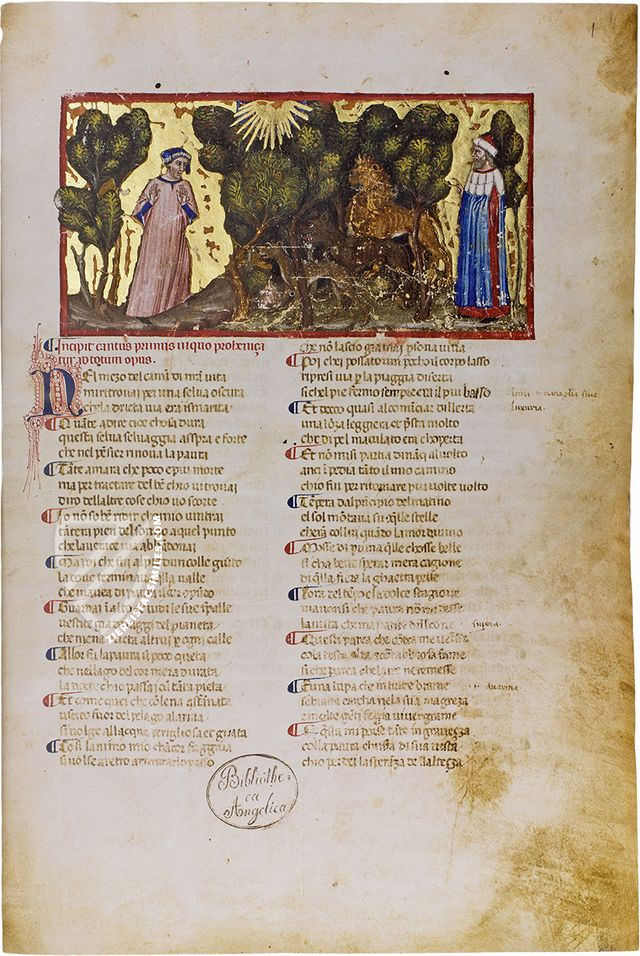 1
Incipit cantus primus in quo prohemiça
tur ad totum opus.
NEl mezo del camin di nrã vita
mi ritrovai per una selva oscura
che la diricta via era smarita
Quãte a dire cice chosa dura
questa selva selvaggia asspra e forte
che nel pẽsier rinova la paura
Tãte amara che poco epiu morte
ma per tractare del bẽ chio vi trovai
diro dellaltre cose chio vo scorte
Io nõ so bẽ ridir chomio vintrai
tãtera pien del sõno a quel punto
che la verace via abbãdonai
Ma poi che fui al pie dun colle giusto
la dove terminava quella valle
che mavea di paura il cor
Guardai ĩ alto vidi le sue spalle
vestite gia di raggi del pianeta
che mena dricta altrui per ogni calle
Allor fu la paura ũ poco queta
che nel lago del cor mera durata
la nocte chio passai cũ tãta pieta
Et come quei che cõ lena afãnata
uscito fuor del pelago alla riva
si volge allacqua perigliosa et guata
Cosi lanimo mio chãcor fuggiva
si volse a retro a rimirar lo passo
che nõ lascio gia mai psona viva
Poi chei possato um pocho il corpo lasso
ripresi via p la piaggia diserta
si chel pie fermo sempre era il piu basso
Et eccho quasi al comĩciar dellerta
una lõza leggiera et p̃sta molto
che di pel maculato era choperta
Et nõ mi si partia dinãçi al volto
anci ĩpedia tãto il mio camino
chio fui per ritornare piu volte volto
Tẽpera dal prĩcipio del matino
el sol mõtava su cõ q̃lle stelle
cherã cõ lui quãdo lamor divino
Mosse di prima q̃lle chosse belle
si cha bene sperar mera cagione
di q̃lla fiera la ghaetta pelle
Lora del tẽpo e la dolce stagione
ma nõ si che paura nõ mi desse
la vista che mapparve dun leone
Questi parea che cõtra me venesse
cola testa alta et cõ rabbiosa fame
si che parea che laere ne temesse
Et una lupa che di tucte brame
sebiava carcha nela sua magreza
et molte gẽti fe gia viver grame
Questa mi porse tãto di graveçça
colla paura chusia di sua vista
chio perdei la sperãza de laltezça
luxuria.
supbia
avaritia
Bibliothe=
ca
Angelica